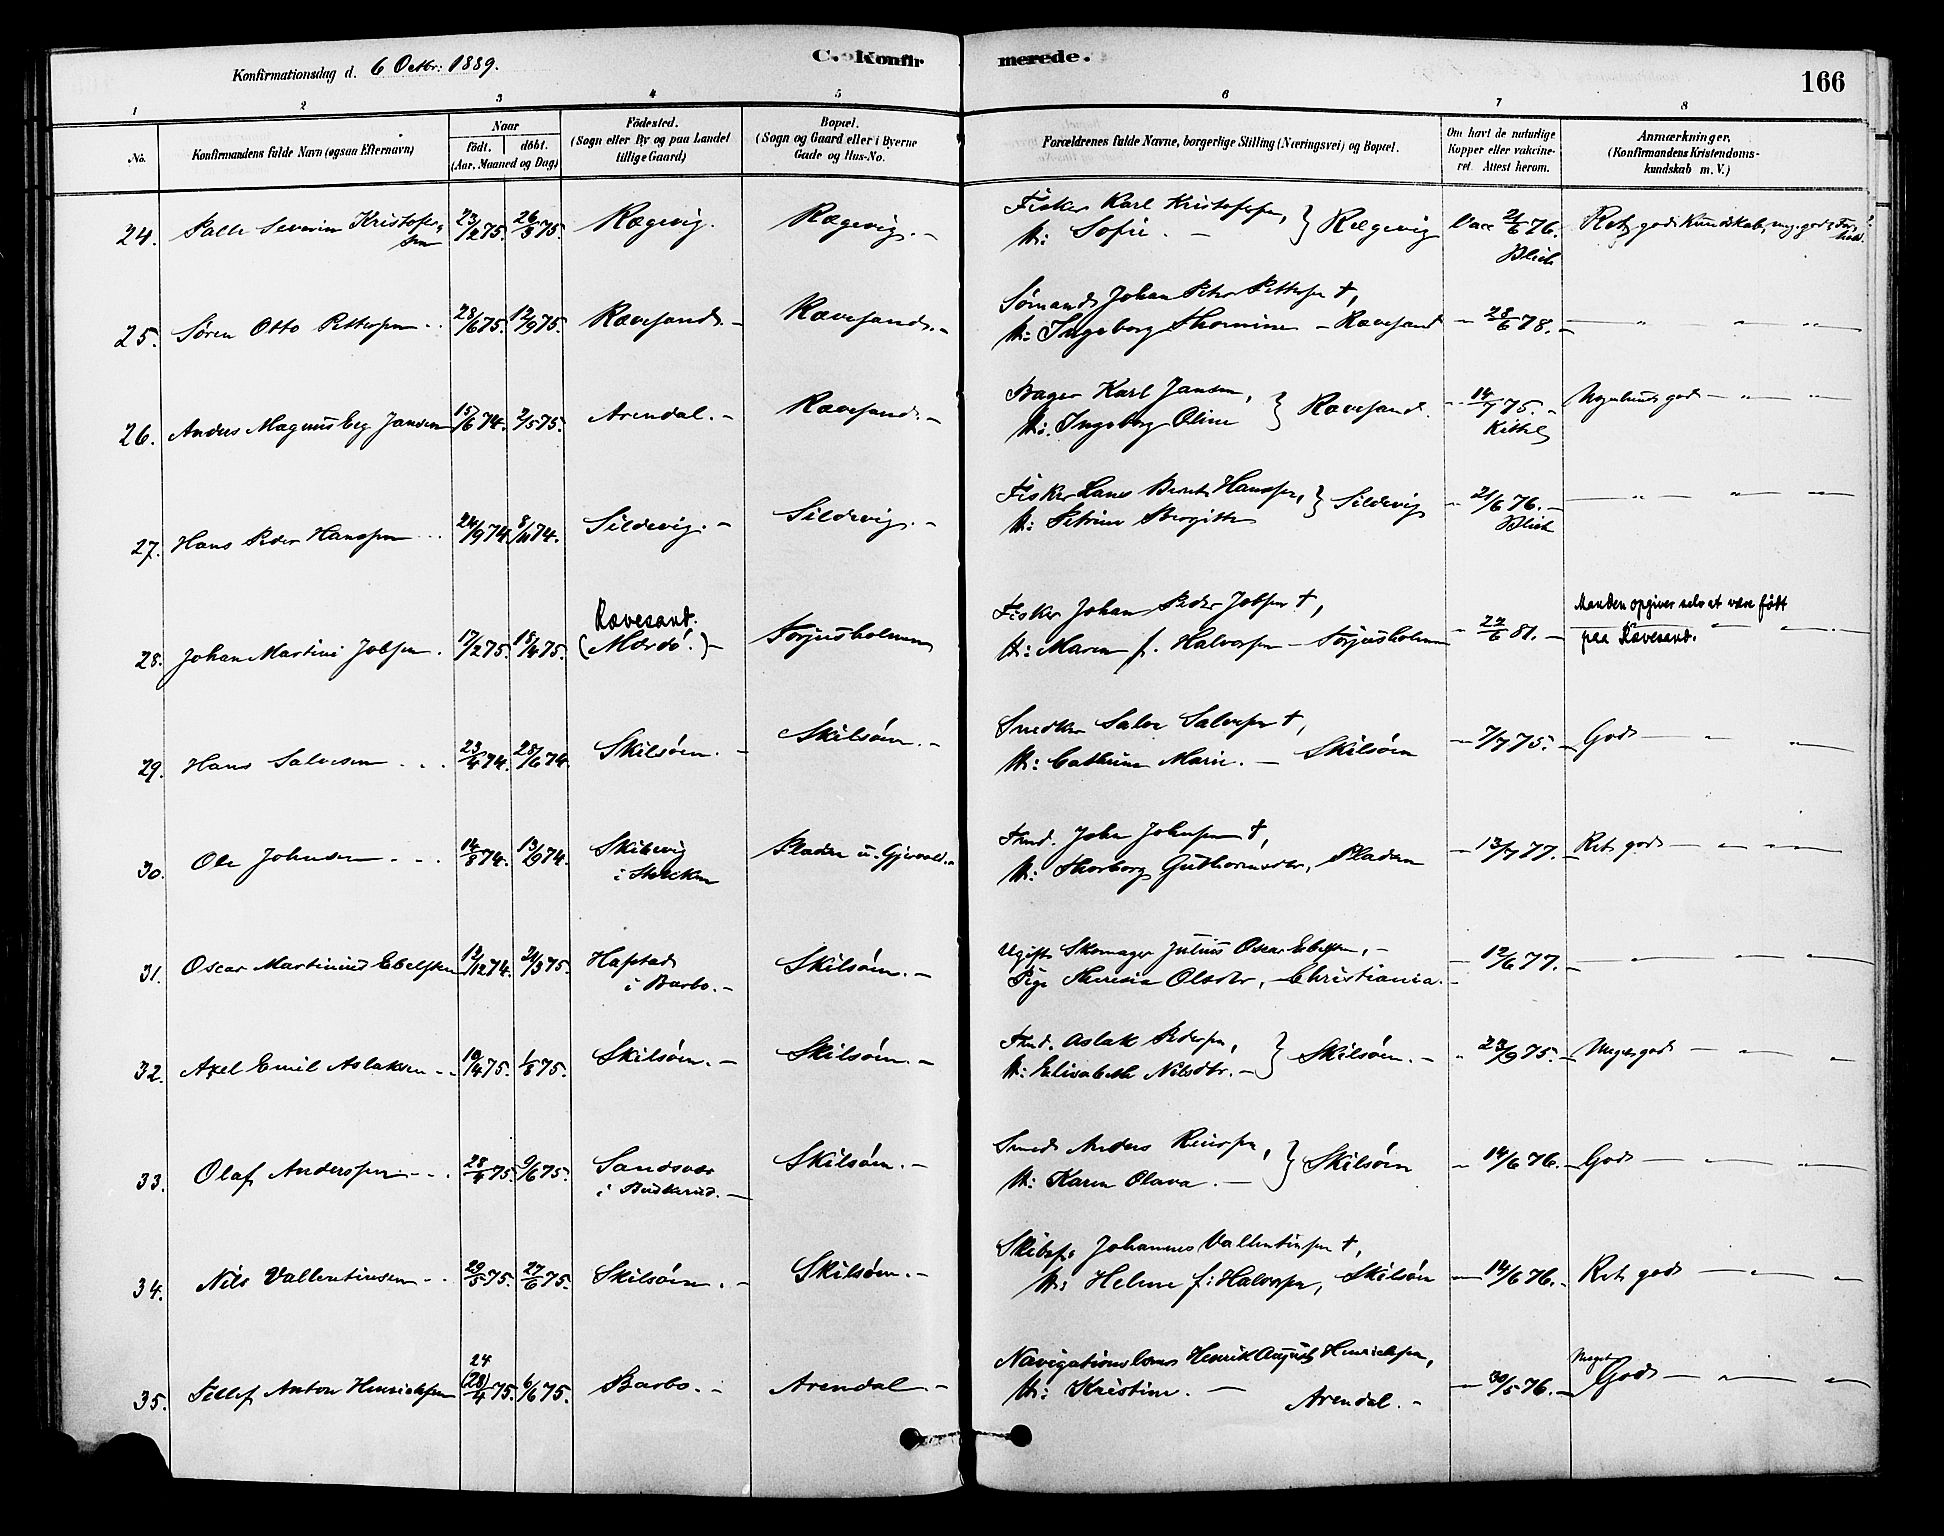 Konfirmationsdag d. 6 Octbr: 1889.
C. Konfirmerede.
166
1 2 3 4 5 6 7 8
No.
Konfirmandens fulde Navn (ogsaa Efternavn)
Naar
födt. döbt.
(Aar. Maaned og Dag)
Födested.
(Sogn eller By og paa Landet
tillige Gaard)
Bopæl.
(Sogn og Gaard eller i Byerne
Gade og Hus-No.
Forældrenes fulde Navne, borgerlige Stilling (Næringsvei) og Bopæl.
Om havt de naturlige
Kopper eller vakcine-
ret. Attest herom.
Anmærkninger,
(Konfirmandens Kristendoms-
kundskab m. V.)
24. Palle Severin Kristofer-
sen 23/12 75. 26/3 75. Rægevig. Rægevig. –
Fisker Karl Kristofersen,
H: Sofie. – } Rægevig Vacc 21/6 76.
Blich
Ret god Kundskab, mg. god Forhold.
25. Søren Otto Pettersen 28/6 75. 12/9 75. Rævesand. – Rævesand. –
Sømand Johan Peter Pettersen †,
H: Ingeborg Thomine – Rævesand – 28/6 78. – — „ — „ „
26. Anders Magnus Eeg Jansen 15/6 74. 2/5 75. Arendal. – Rævesand. –
Bager Karl Jansen,
H: Ingeborg Oline } Rævesand. – 14/7 75. –
Kittel
god — „ — „ —
27. Hans Peder Hanssen 24/9 74. 8/11 74. Sildevig. – Sildevig. –
Fisker Hans Bernt Hanssen,
H: Petrine Birgitte } Sildevig – 21/6 76. –
Blich
— „ — „ —
28. Johan Martin Jobsen. 17/2 75. 18/4 75. Rævesand.
(Mærdö.) – Torjusholmen
Fisker Johan Peder Jobsen †,
H: Maren f. Halvorsen – Torjusholmen – 27/6 81. –
Manden opgiver selv at være født
paa Rævesand.
29. Hans Salvesen 23/4 74. 28/6 74. Skilsøen. – Skilsøen. –
Snedker Salve Salvesen †,
H: Cathrine Marie. – Skilsøen – 7/7 75. – God — „ „ —
30. Ole Johnsen 14/8 74. 13/9 74. Skibevig
i Stokken Pladsen u. Gjervold.
Fmd. John Johnsen †,
H: Thorborg Guthormsdtr, Pladsen – 13/7 77. – Ret god — „ — „ —
31. Oscar Martinius Ebelsten 12/12 74. 21/3 75. Hafstad
i Barbo. – Skilsøen. –
Ugift Skomager Julius Oscar Ebelsten, –
Pige Theresia Olsdtr, – Christiania. – 12/6 77. – — „ — „ —
32. Axel Emil Aslaksen 10/4 75. 1/8 75. Skilsøen. – Skilsøen. –
Fmd. Aslak Pedersen,
H: Elisabeth Nilsdtr. – } Skilsøen. – „ 23/9 75. – Meget god — „ — „
33. Olaf Anderssen 28/4 75. 9/6 75. Sandsvær
i Buskerud. – Skilsøen. –
Smed Anders Reiersen,
H: Karen Olava. – } Skilsøen – 14/6 76. – God — „ — „ —
34. Nils Vallentinsen 29/5 75. 27/6 75. Skilsøen. – Skilsøen. –
Skibsf: Johannes Vallentinsen †,
H: Helene f: Halvorsen, Skilsøen – 14/6 76. – Ret god — „ — „
35. Tellef Anton Henricksen 24
(28)/4 75. 6/6 75. Barbo. – Arendal –
Navigationslærer Henrik August Henricksen,
H: Kristine. –
Arendal. – – 30/5 76. – Meget
God — „ — „